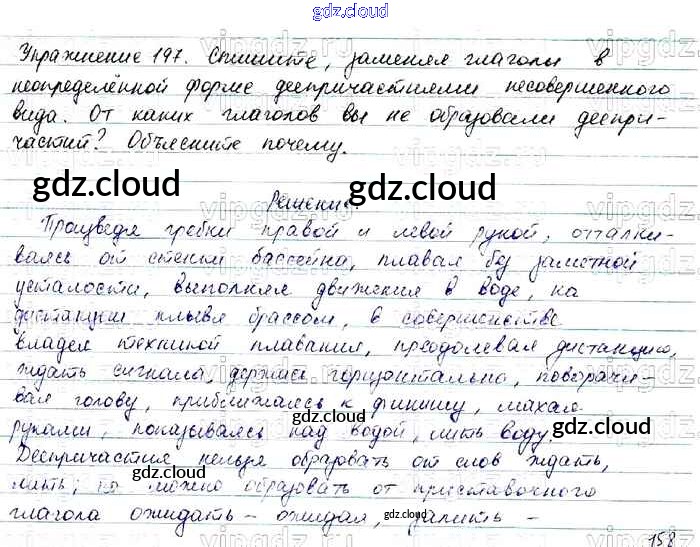 gdz.cloud
Упражнение 197. Спишите, заменяя глаголы в
неопределённой форме деепричастиями несовершенного
вида. От каких глаголов вы не образовали деепри-
частий? Объясните почему.
gdz.cloud gdz.cloud
Решение.
Произведя гребки правой и левой рукой, отталки-
ваясь от стенки бассейна, плавая без заметной
усталости, выполняя движения в воде, на
дистанции плывя брассом, в совершенстве
владея техникой плавания, преодолевая дистанцию,
ждать сигнала, держась горизонтально, поворачи-
вая голову, приближаясь к финишу, махая
gdz.cloud
руками, показываясь над водой, лить воду
gdz.cloud
Деепричастия нельзя образовать от слов ждать,
gdz.cloud
лить, но можно образовать от приставочного
глагола ожидать – ожидая, залить –
gdz.cloud
158